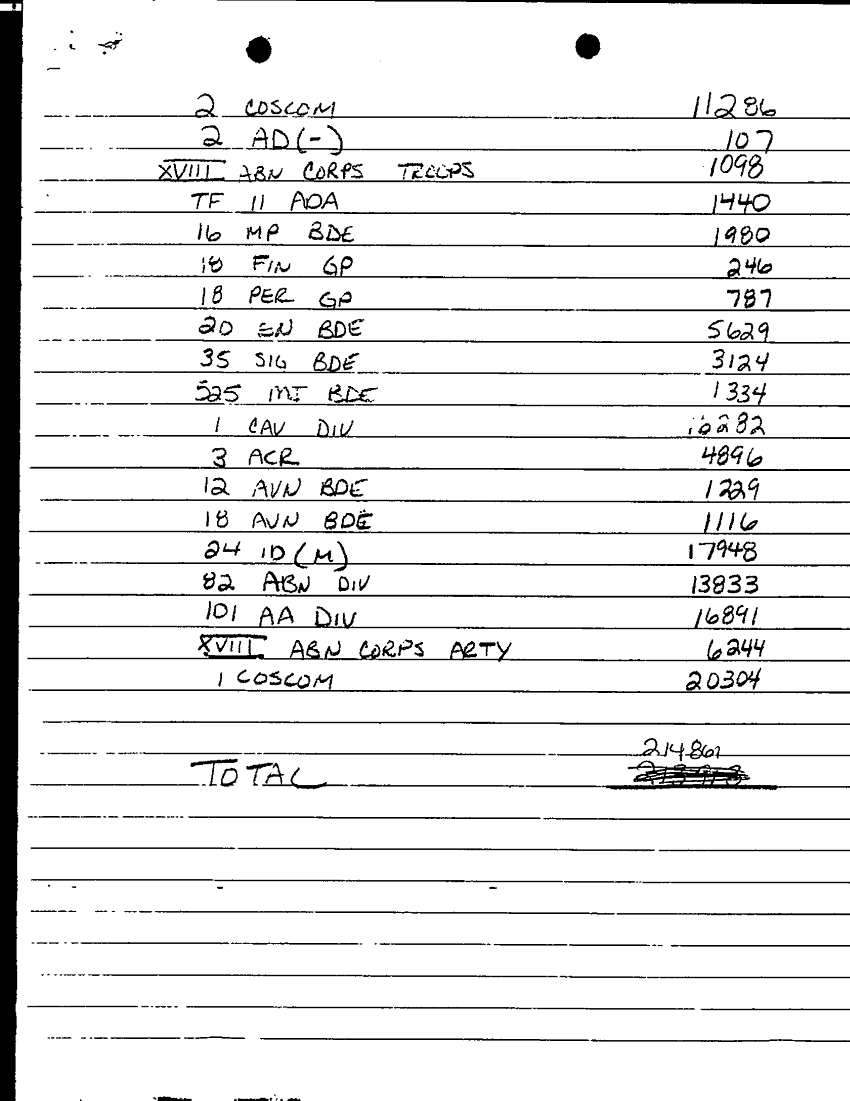 2 COSCOM 11286
2 AD(-) 107
XVIII ABN CORPS TROOPS 1098
TF 11 ADA 1440
16 MP BDE 1980
18 FIN GP 246
18 PER GP 787
20 EN BDE 5629
35 SIG BDE 3124
525 MI BDE 1334
1 CAV DIV
3 ACR 4896
12 AVN BDE 1229
18 AVN BDE 1116
24 ID (M) 17948
82 ABN DIV 13833
101 AA DIV 16891
XVIII ABN CORPS ARTY 6244
1 COSCOM 20304
214861
TOTAL